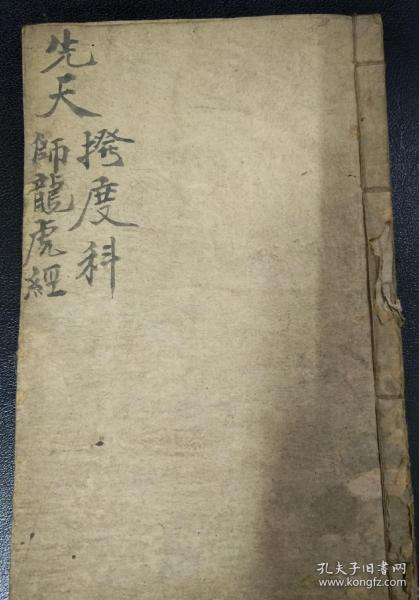 先天
撥度科
師龍虎經
孔夫子旧书网
www.kongfz.com